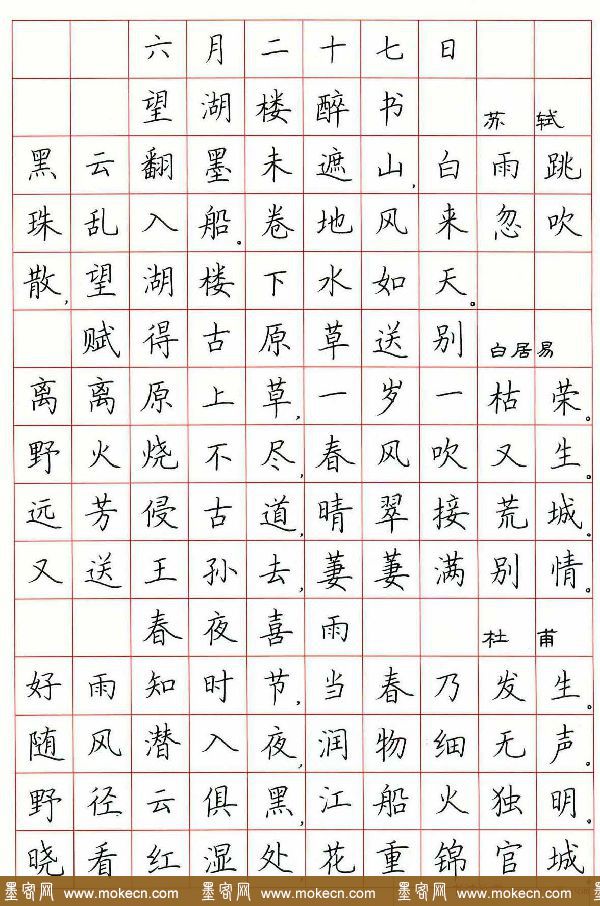 六月二十七日
望湖楼醉书 苏轼
黑云翻墨未遮山,白雨跳
珠乱入船。卷地风来忽吹
散,望湖楼下水如天。
赋得古原草送别 白居易
离离原上草,一岁一枯荣。
野火烧不尽,春风吹又生。
远芳侵古道,晴翠接荒城。
又送王孙去,萋萋满别情。
春夜喜雨 杜甫
好雨知时节,当春乃发生。
随风潜入夜,润物细无声。
野径云俱黑,江船火独明。
晓看红湿处,花重锦官城。
墨客网 www.mokecn.com 墨客网 www.mokecn.com 墨客网 www.mokecn.com